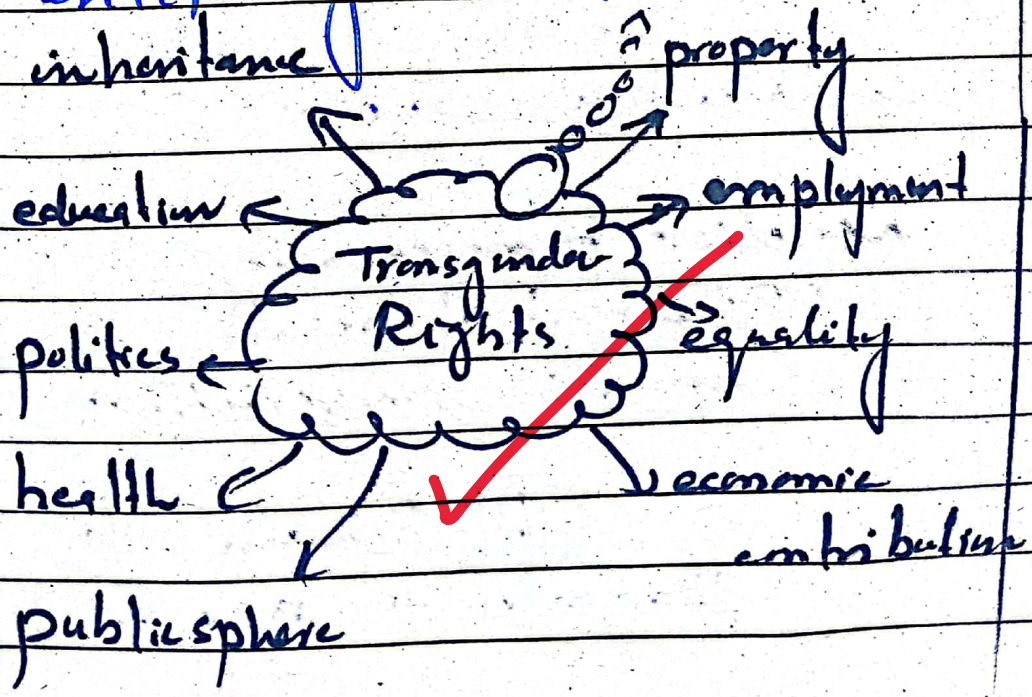 inheritance
property
education
employment
Transgender
Rights
equality
politics
health
economic
contribution
public sphere